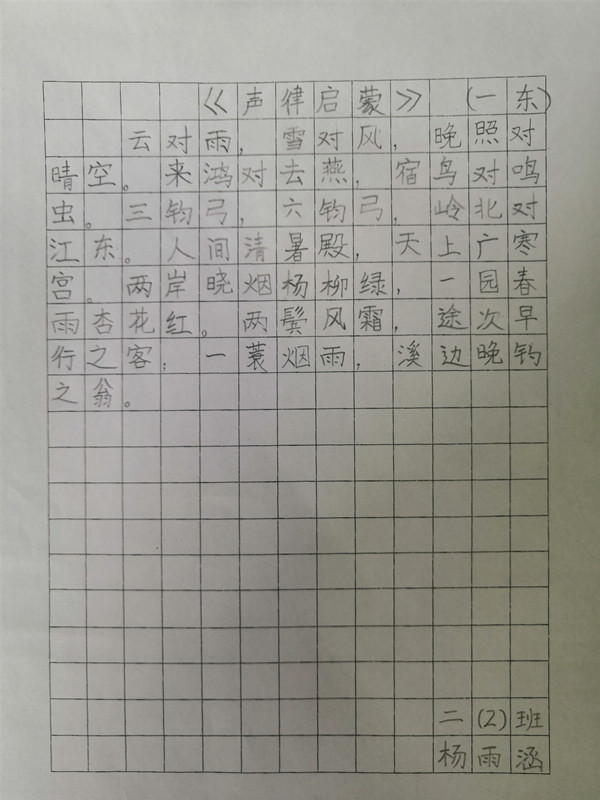 《声律启蒙》 (一东)
云对雨，雪对风，晚照对
晴空。来鸿对去燕，宿鸟对鸣
虫。三钧弓，六钧弓，岭北对
江东。人间清暑殿，天上广寒
宫。两岸晓烟杨柳绿，一园春
雨杏花红。两鬓风霜，途次早
行之客；一蓑烟雨，溪边晚钓
之翁。
二(2)班
杨雨涵